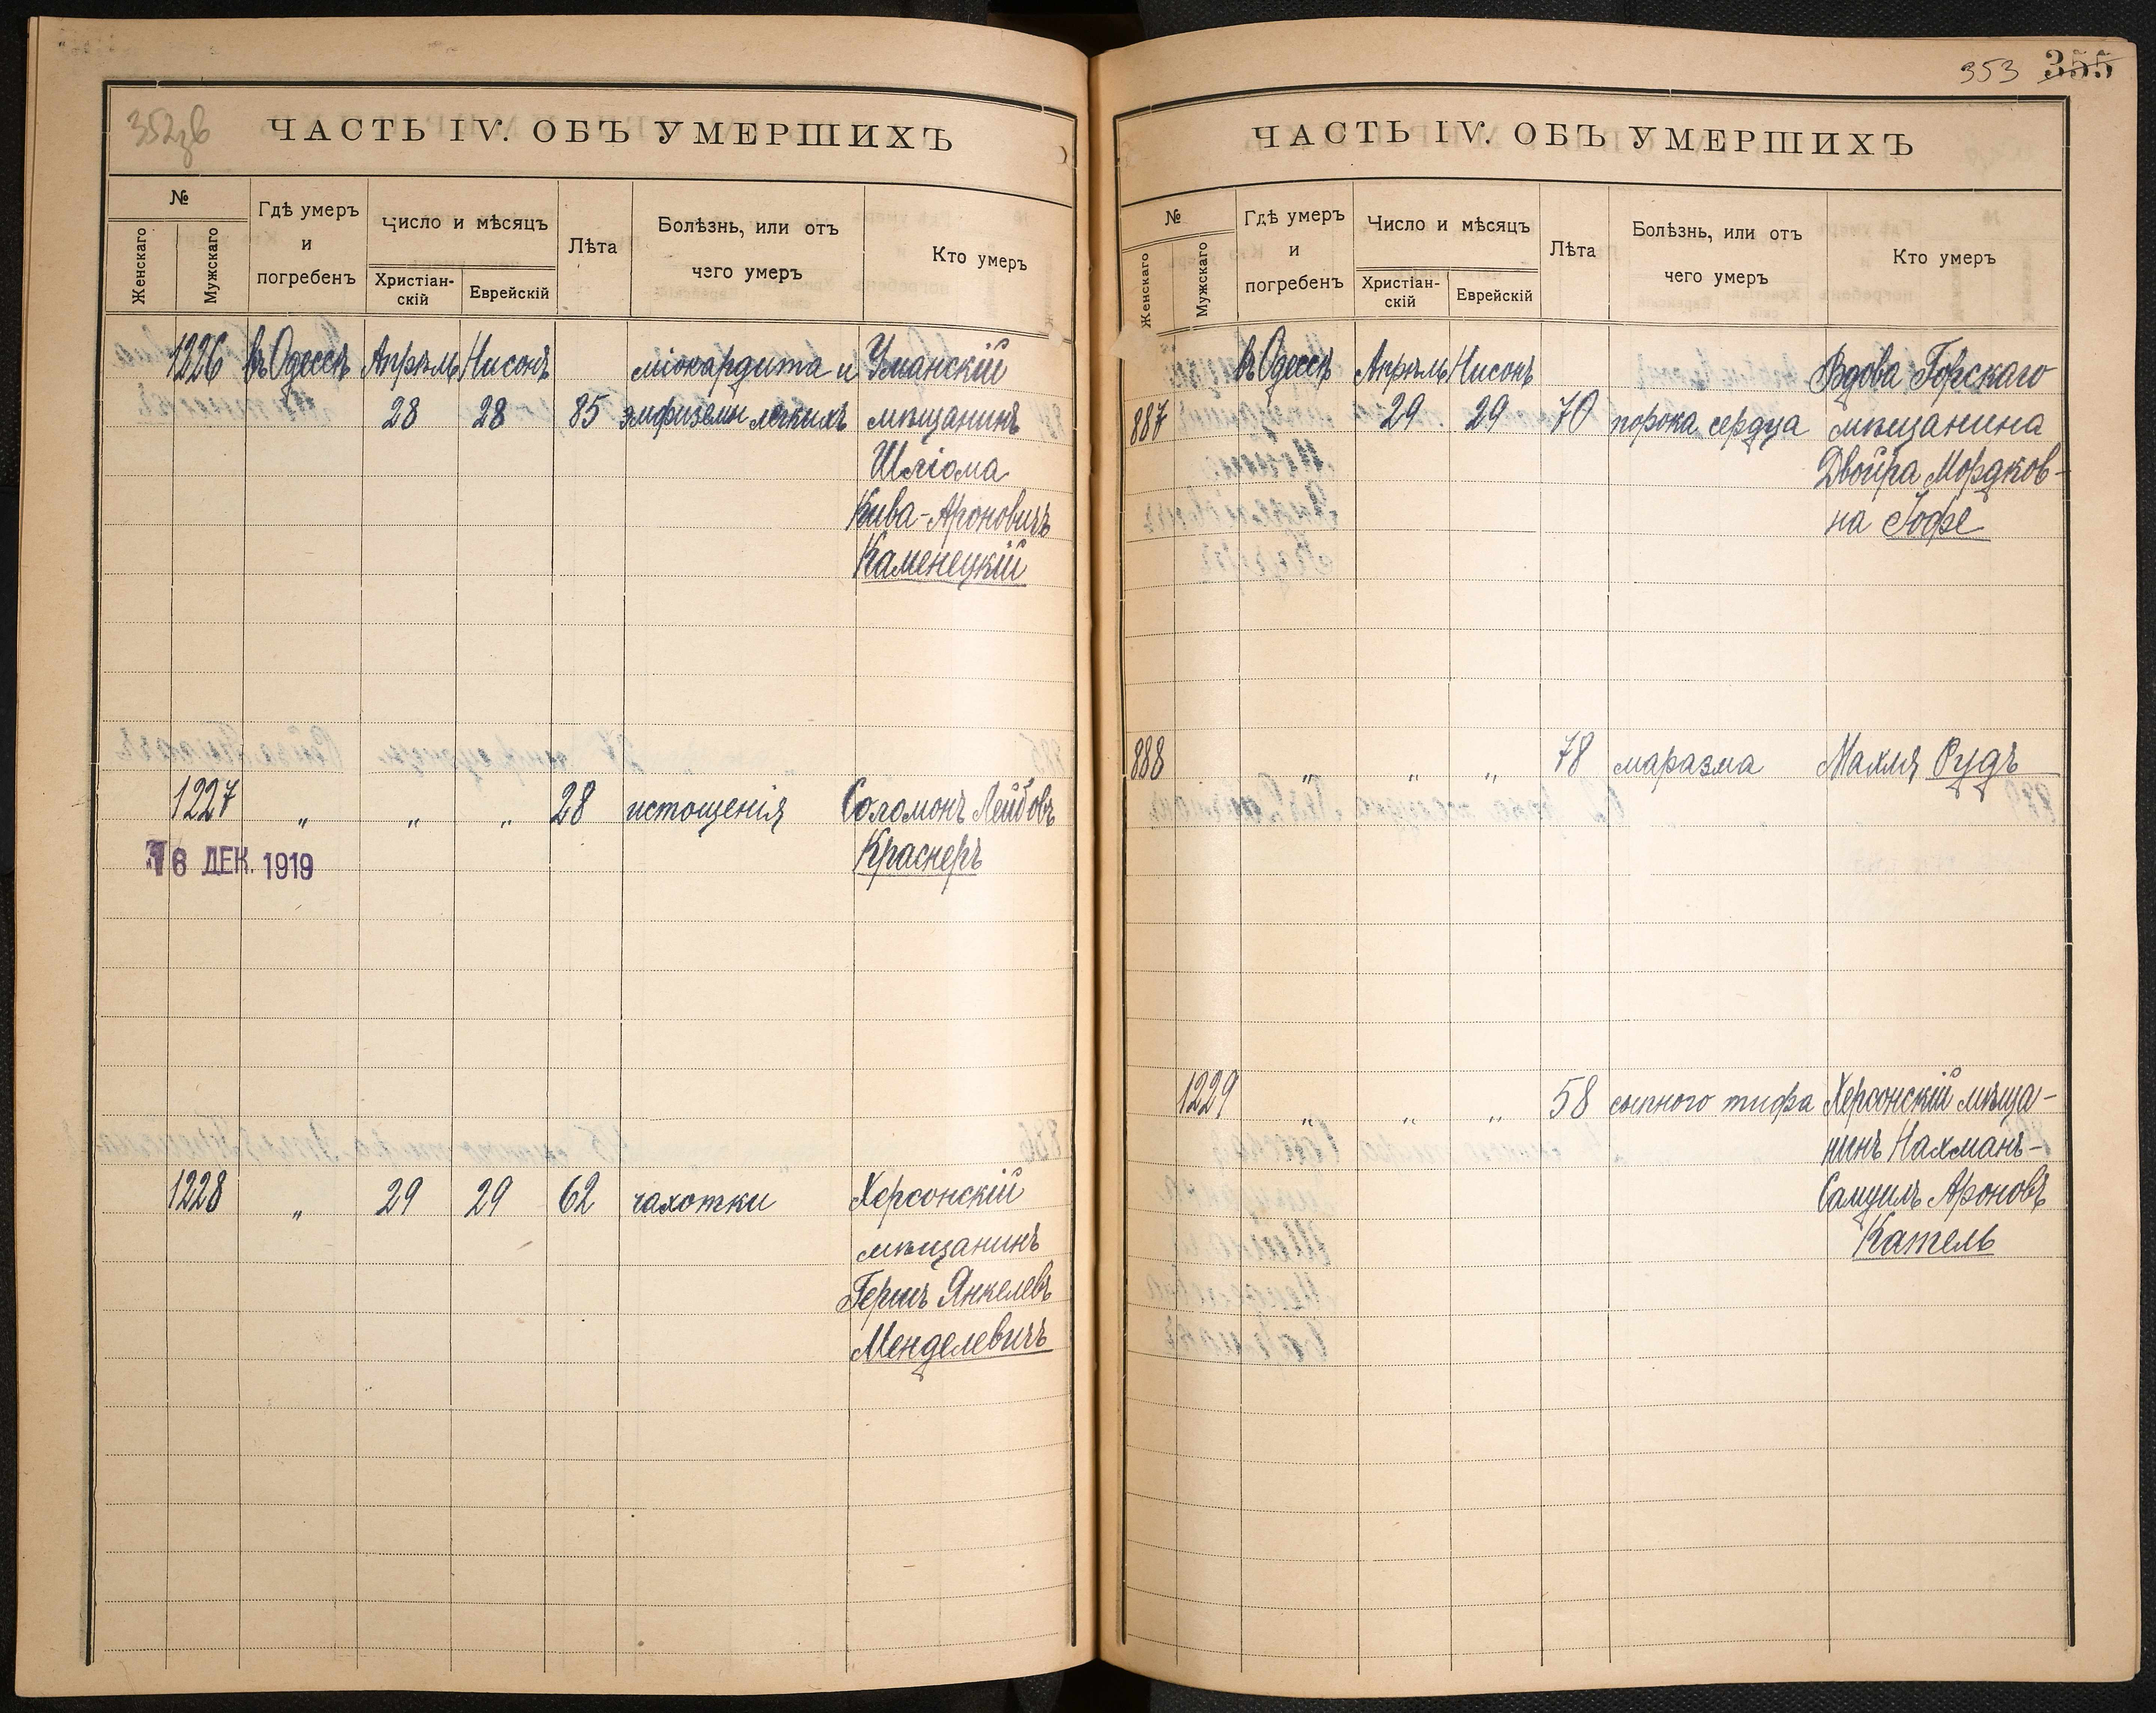 352зв
ЧАСТЬ IV. ОБЪ УМЕРШИХЪ
№
Женскаго
Мужскаго
Гдѣ умеръ
и
погребенъ
Число и мѣсяцъ
Христіан-
скій
Еврейскій
Лѣта
Болѣзнь, или отъ
чего умеръ
Кто умеръ
1226 въ Одессѣ Апрѣль Нисонъ міокардита и Уманскій
28 28 85 эмфиземы легкихъ мѣщанинъ
Шліома
Кива-Ароновичъ
Каменецкій
1227 „ „ „ 28 истощенія Соломонъ Лейбовъ
Краснеръ
16 ДЕК. 1919
1228 „ 29 29 62 чахотки Херсонскій
мѣщанинъ
Гершъ Янкелевъ
Менделевичъ
353 355
ЧАСТЬ IV. ОБЪ УМЕРШИХЪ
№
Женскаго
Мужскаго
Гдѣ умеръ
и
погребенъ
Число и мѣсяцъ
Христіан-
скій
Еврейскій
Лѣта
Болѣзнь, или отъ
чего умеръ
Кто умеръ
въ Одессѣ Апрѣль Нисонъ Вдова Горскаго
887 29 29 70 порока сердца мѣщанина
Двойра Мордков-
на Гофе
888 „ „ „ 78 маразма Махля Рудъ
1229 „ „ „ 58 сыпного тифа Херсонскій мѣща-
нинъ Нахманъ-
Самуилъ Ароновъ
Катель